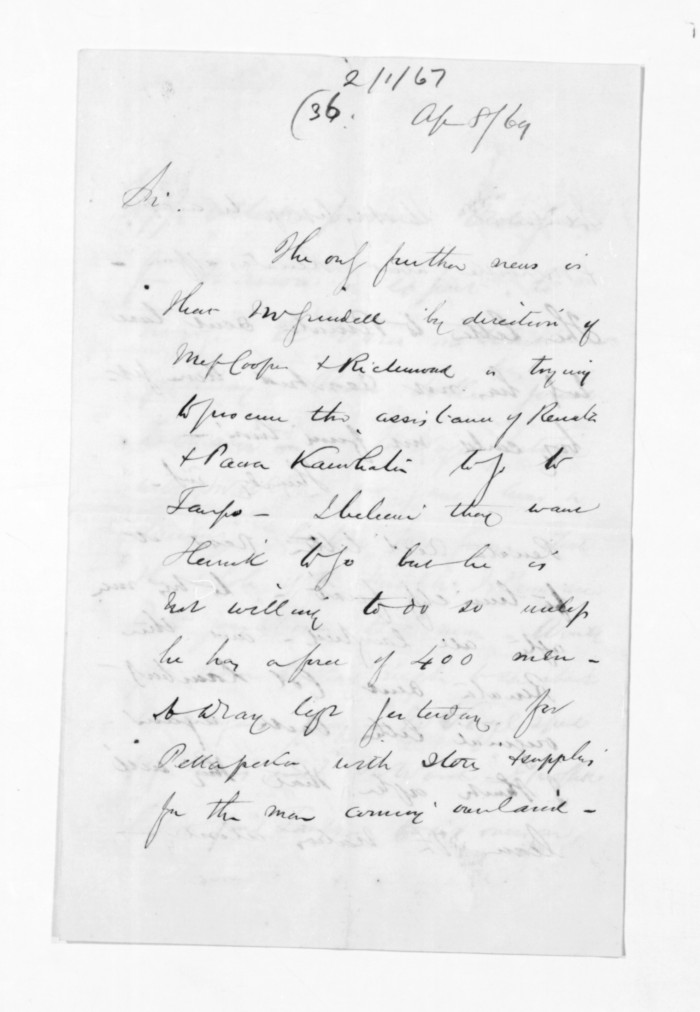 2/1/67
(36.
Apr 8/69
Sir.
The only further news is
that Mr Grindell by direction of
Messrs Cooper & Richmond is trying
to procure the assistance of Renata
& Paora Kaiwhata to go to
Taupo – I believe they want
Henare to go but he is
not willing to do so unless
he has a force of 400 men –
A Dray left yesterday for
with store & supplies
for the men coming overland –